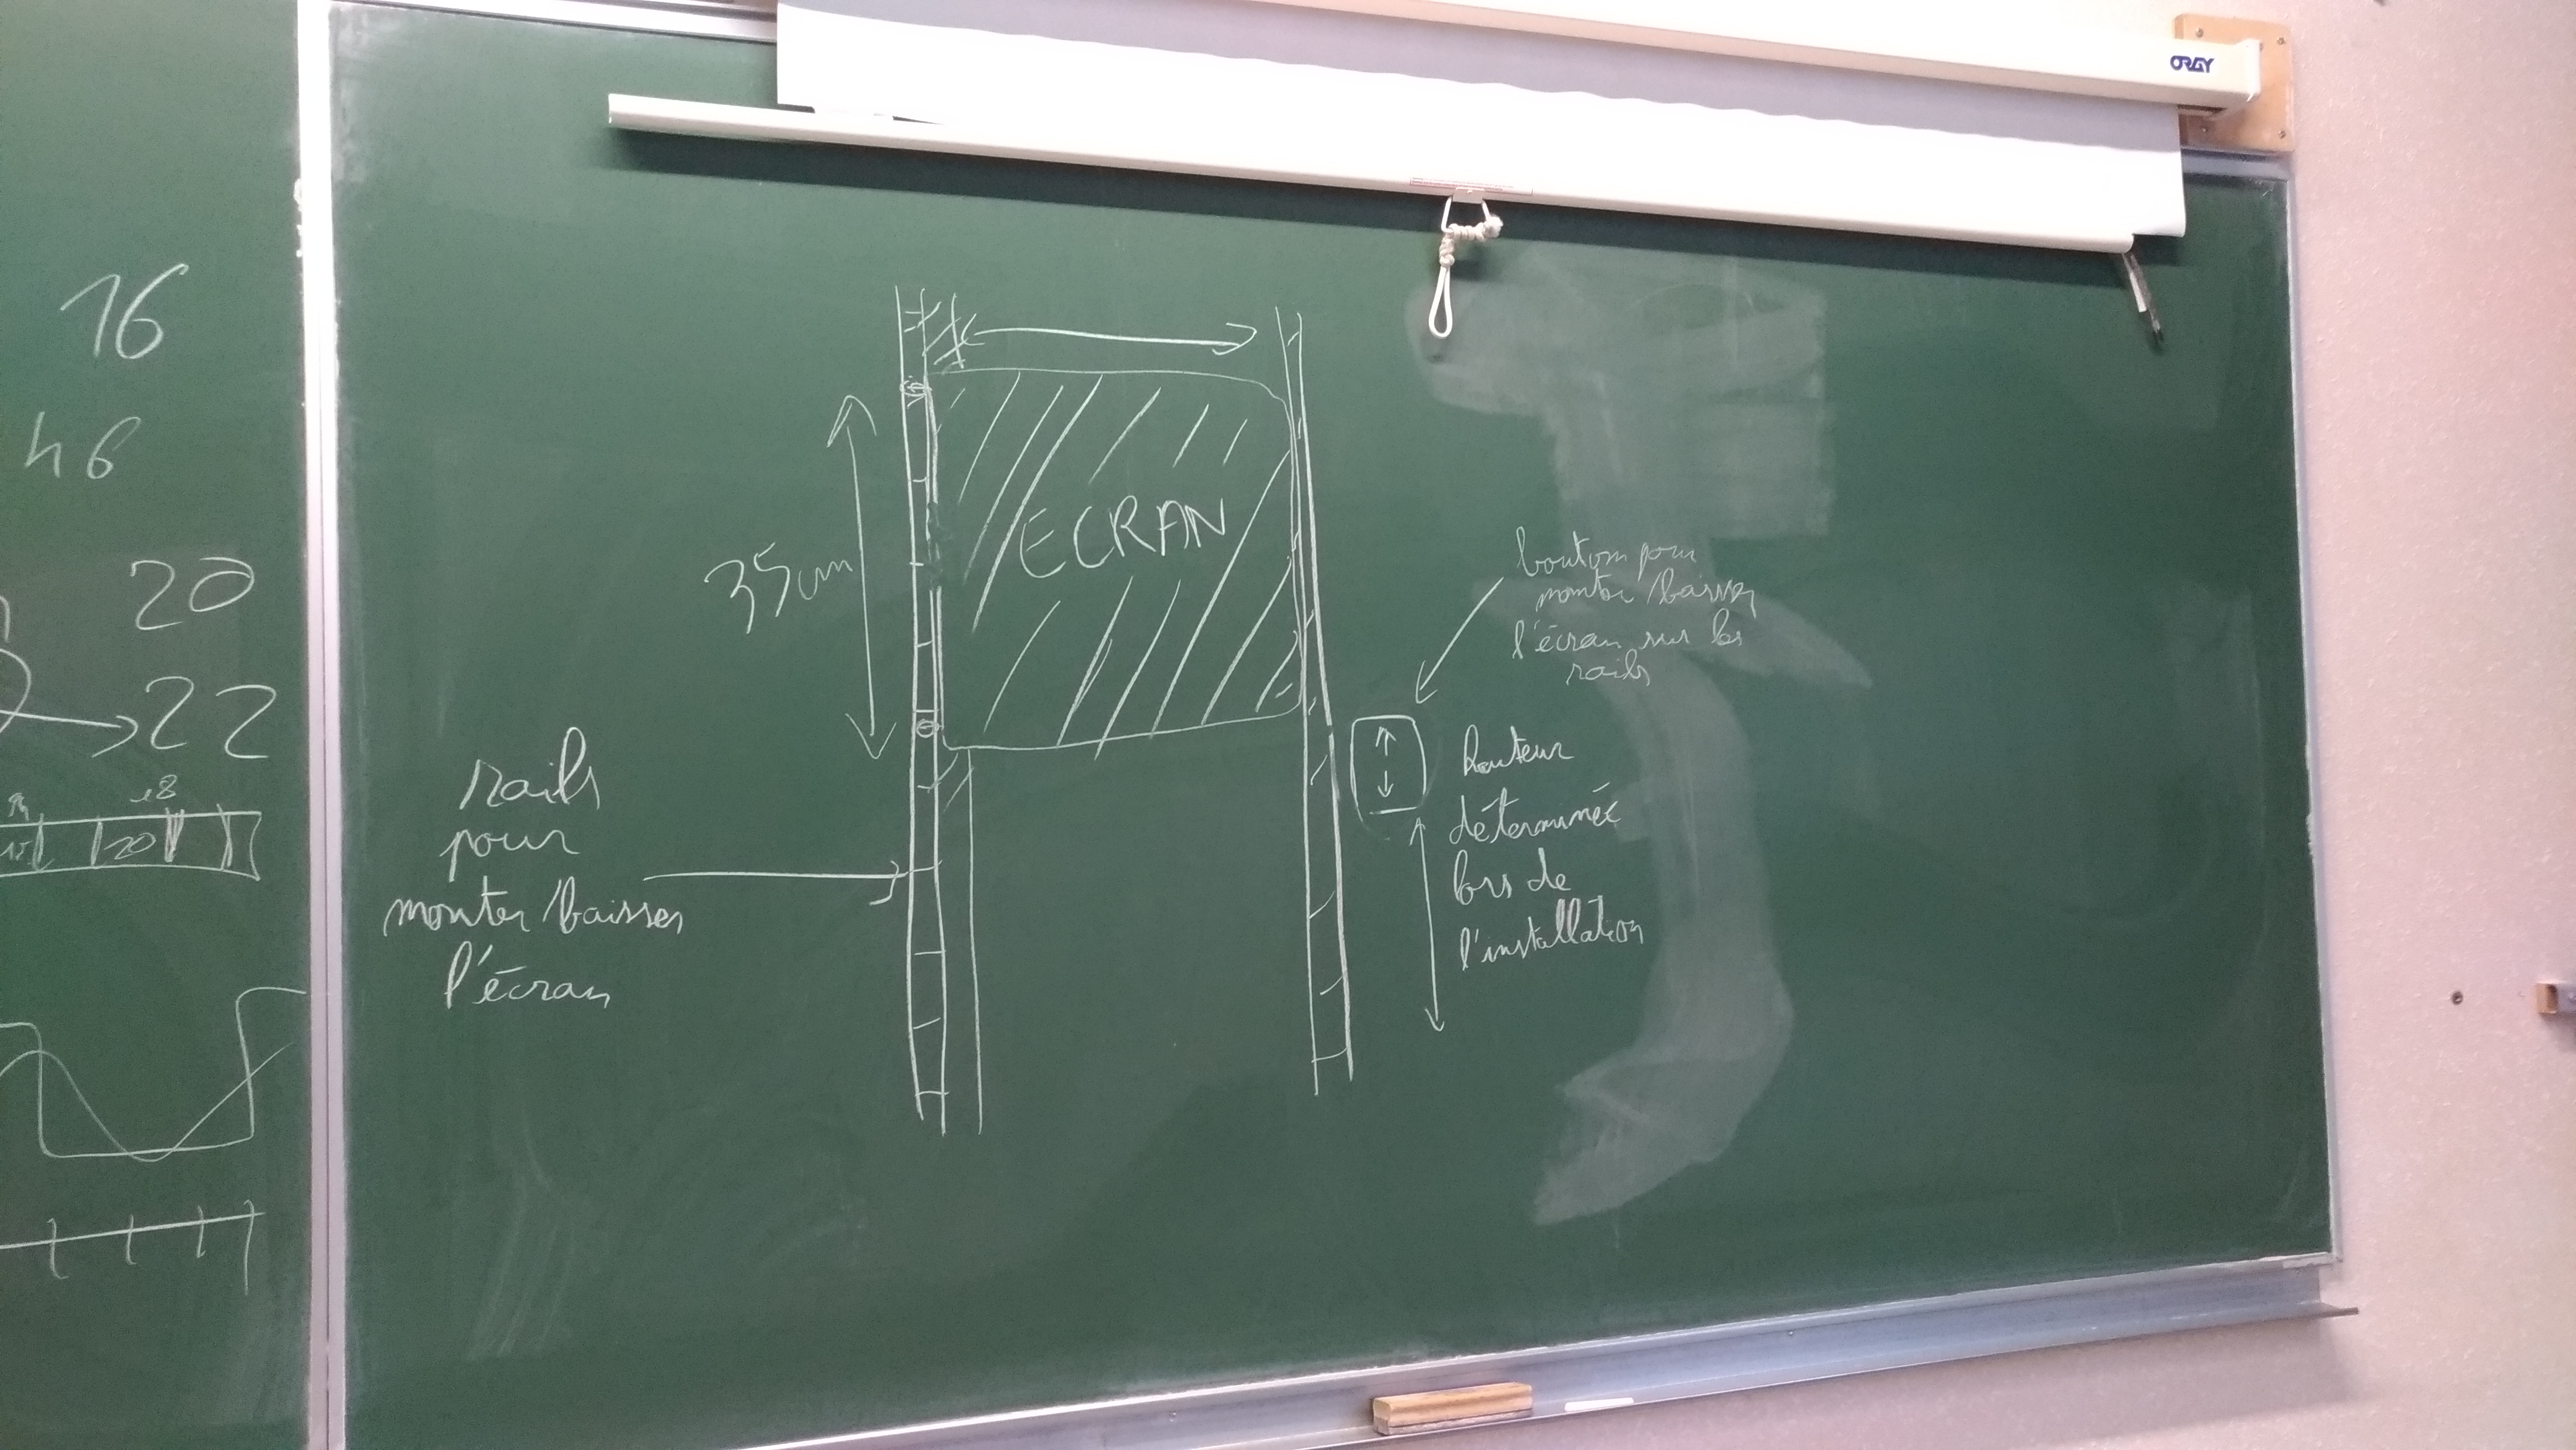 ORAY
16
46
20
22
18
20
ECRAN
35cm
rails
pour
monter/baisser
l'écran
bouton pour
monter/baisser
l'écran sur les
rails
hauteur
déterminée
lors de
l'installation